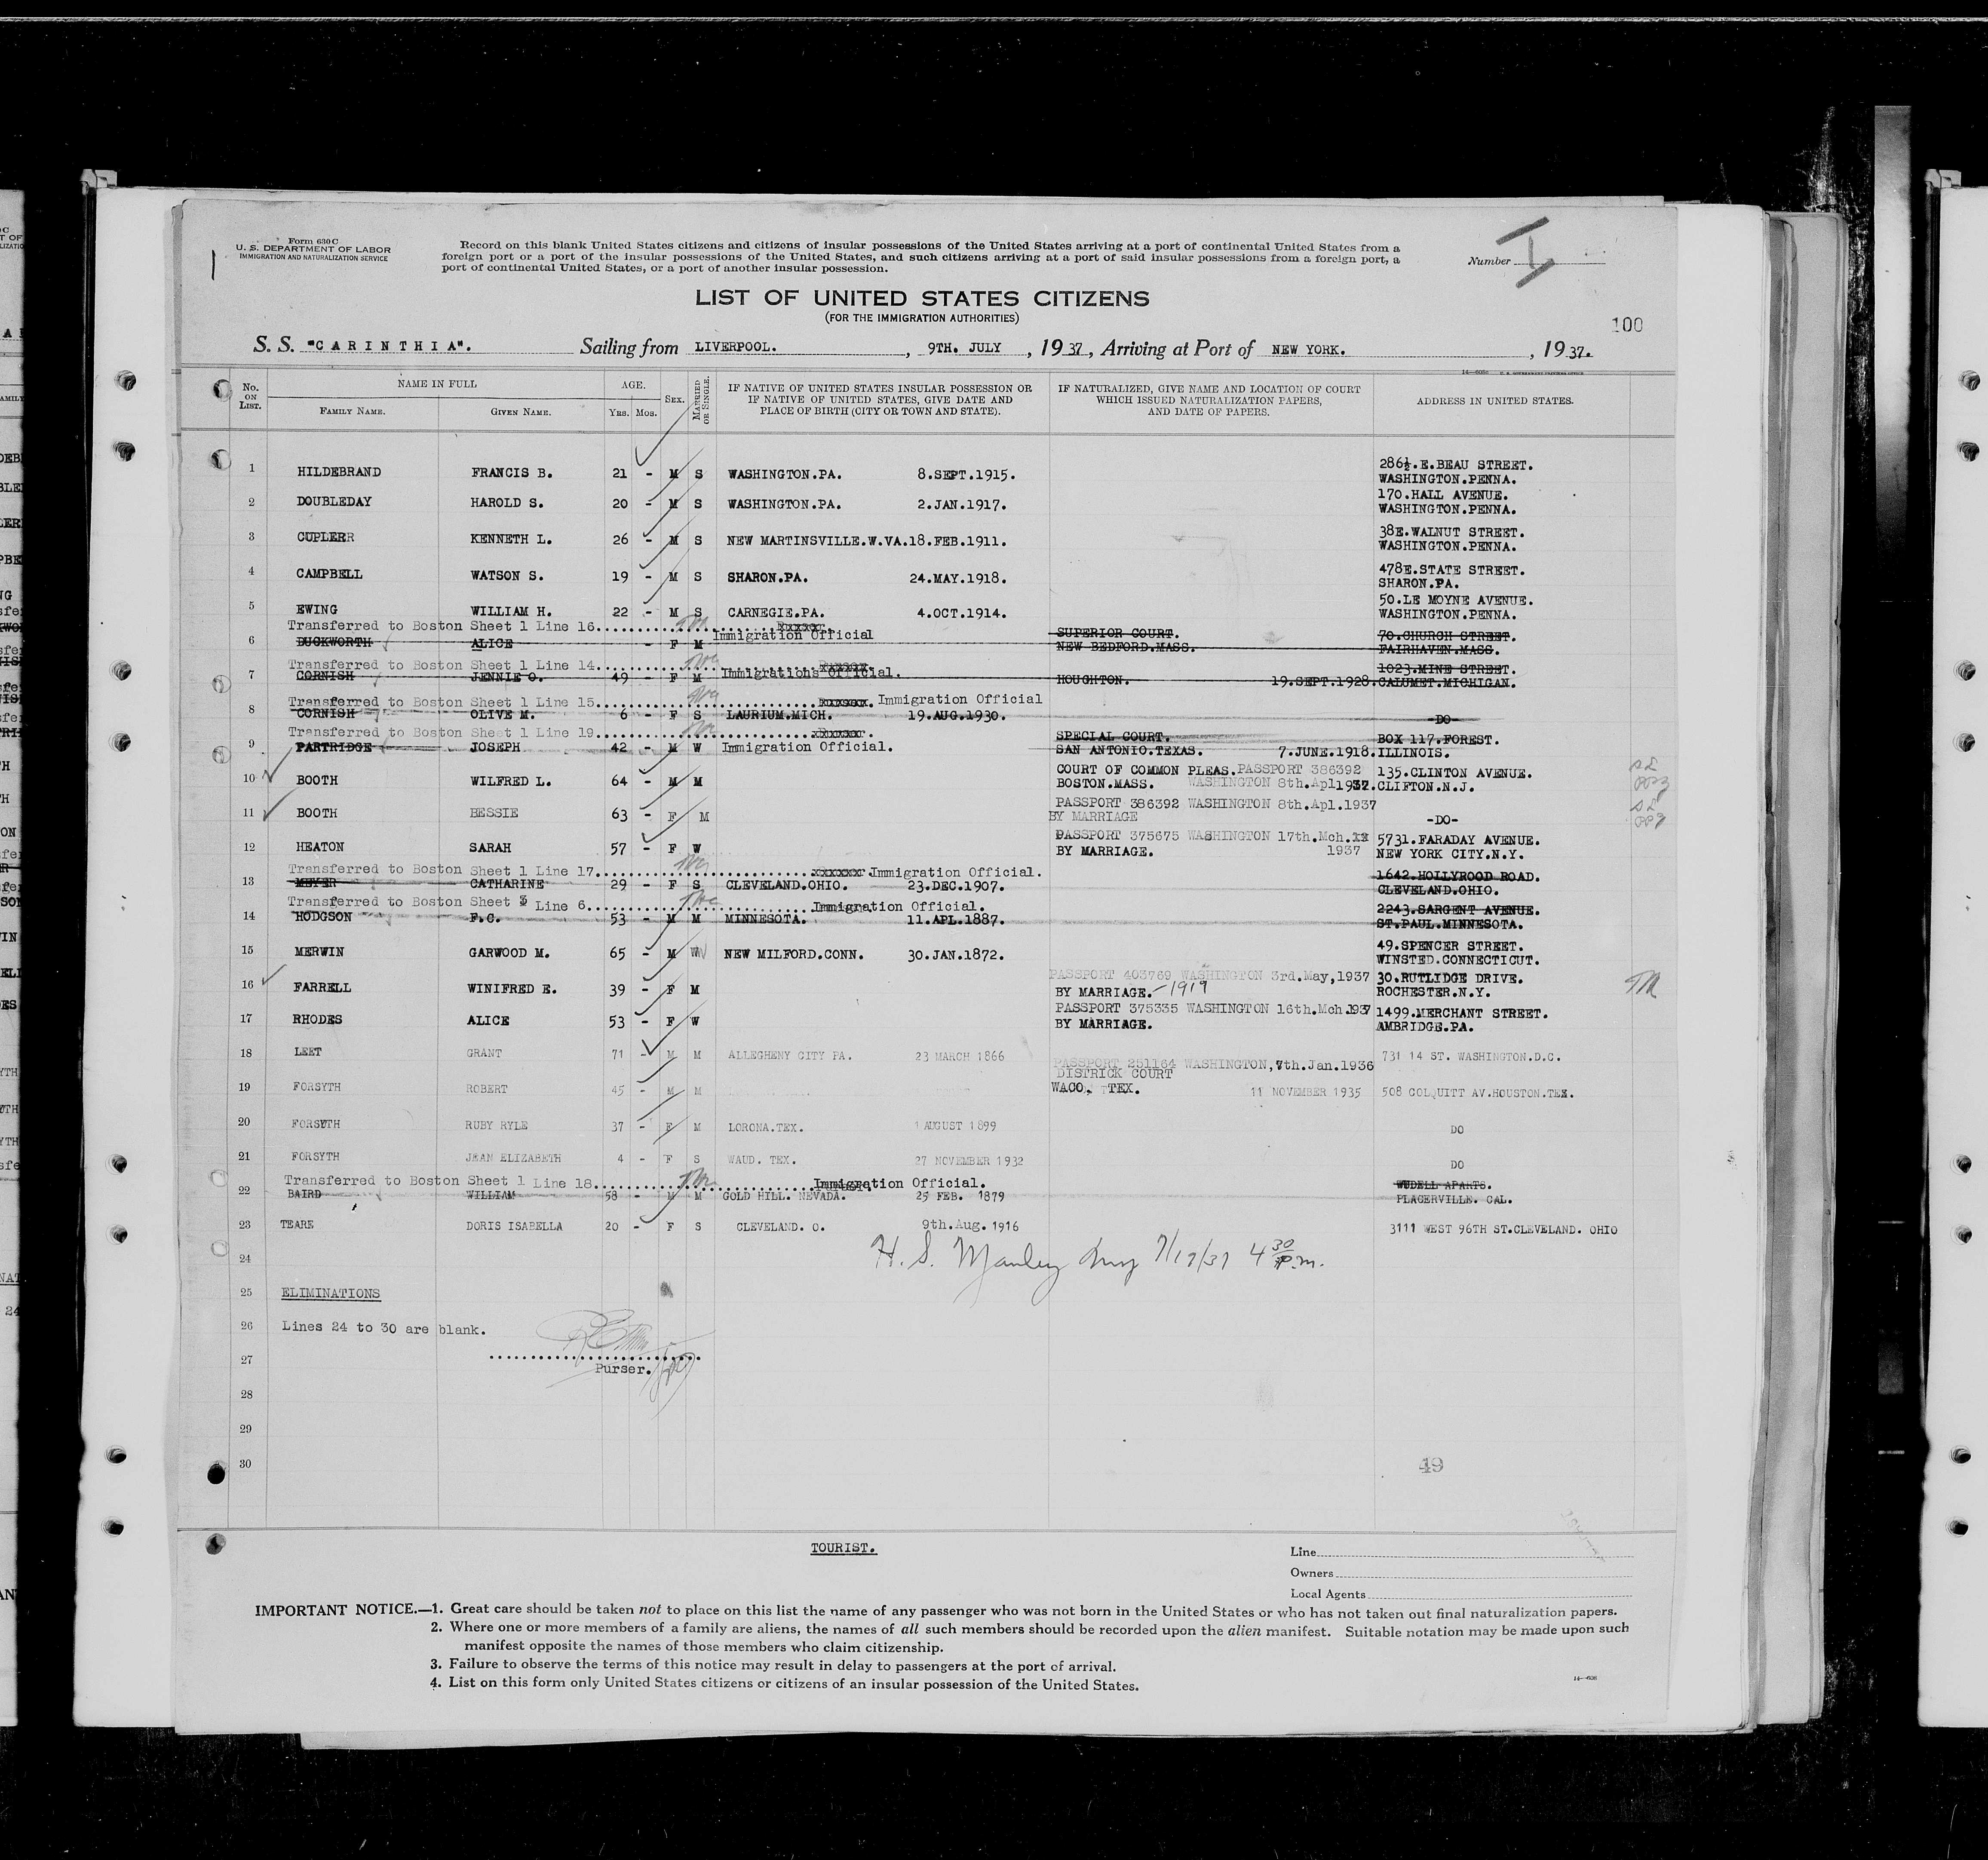 Form 630 C
U. S. DEPARTMENT OF LABOR
IMMIGRATION AND NATURALIZATION SERVICE
Record on this blank United States citizens and citizens of insular possessions of the United States arriving at a port of continental United States from a
foreign port or a port of the insular possessions of the United States, and such citizens arriving at a port of said insular possessions from a foreign port, a
port of continental United States, or a port of another insular possession.
Number I
LIST OF UNITED STATES CITIZENS
(FOR THE IMMIGRATION AUTHORITIES)
100
S. S. "CARINTHIA". Sailing from LIVERPOOL. , 9TH. JULY , 1937, Arriving at Port of NEW YORK. , 1937.
No. ON LIST. NAME IN FULL FAMILY NAME. GIVEN NAME. AGE. Yrs. Mos. SEX. MARRIED OR SINGLE.
IF NATIVE OF UNITED STATES INSULAR POSSESSION OR
IF NATIVE OF UNITED STATES, GIVE DATE AND
PLACE OF BIRTH (CITY OR TOWN AND STATE).
IF NATURALIZED, GIVE NAME AND LOCATION OF COURT
WHICH ISSUED NATURALIZATION PAPERS,
AND DATE OF PAPERS.
ADDRESS IN UNITED STATES.
1 HILDEBRAND FRANCIS B. 21 - M S WASHINGTON.PA. 8.SEPT.1915. 286½.E.BEAU STREET.
WASHINGTON.PENNA.
2 DOUBLEDAY HAROLD S. 20 - M S WASHINGTON.PA. 2.JAN.1917. 170.HALL AVENUE.
WASHINGTON.PENNA.
3 CUPLERR KENNETH L. 26 - M S NEW MARTINSVILLE.W.VA.18.FEB.1911. 38E.WALNUT STREET.
WASHINGTON.PENNA.
4 CAMPBELL WATSON S. 19 - M S SHARON.PA. 24.MAY.1918. 478E.STATE STREET.
SHARON.PA.
5 EWING WILLIAM H. 22 - M S CARNEGIE.PA. 4.OCT.1914. 50.LE MOYNE AVENUE.
WASHINGTON.PENNA.
Transferred to Boston Sheet 1 Line 16
Immigration Official
6 DUCKWORTH ALICE - F M SUPERIOR COURT. 70.CHURCH STREET.
NEW BEDFORD.MASS. FAIRHAVEN.MASS.
Transferred to Boston Sheet 1 Line 14
1023.MINE STREET.
7 CORNISH JENNIE O. 49 - F M Immigrations Official. HOUGHTON. 19.SEPT.1928.CALUMET.MICHIGAN.
Transferred to Boston Sheet 1 Line 15 Immigration Official
8 CORNISH OLIVE M. 6 - F S LAURIUM.MICH. 19.AUG.1930. -DO-
Transferred to Boston Sheet 1 Line 19
SPECIAL COURT. BOX 117.FOREST.
9 PARTRIDGE JOSEPH 42 - M W Immigration Official. SAN ANTONIO.TEXAS. 7.JUNE.1918.ILLINOIS.
COURT OF COMMON PLEAS.PASSPORT 386392 135.CLINTON AVENUE.
10 BOOTH WILFRED L. 64 - M M BOSTON.MASS. WASHINGTON 8th.Apl1937.CLIFTON.N.J.
PASSPORT 386392 WASHINGTON 8th.Apl.1937
11 BOOTH BESSIE 63 - F M BY MARRIAGE -DO-
PASSPORT 375675 WASHINGTON 17th.Mch. 5731.FARADAY AVENUE.
12 HEATON SARAH 57 - F W BY MARRIAGE. 1937 NEW YORK CITY.N.Y.
Transferred to Boston Sheet 1 Line 17 Immigration Official.
13 MEYER CATHARINE 29 - F S CLEVELAND.OHIO. 23.DEC.1907. 1642.HOLLYROOD ROAD.
CLEVELAND.OHIO.
Transferred to Boston Sheet 3 Line 6 Immigration Official.
14 HODGSON F.C. 53 - M M MINNESOTA. 11.APL.1887. 2243.SARGENT AVENUE.
ST.PAUL.MINNESOTA.
15 MERWIN GARWOOD M. 65 - M W NEW MILFORD.CONN. 30.JAN.1872. 49.SPENCER STREET.
WINSTED.CONNECTICUT.
PASSPORT 403769 WASHINGTON 3rd.May,1937 30.RUTLIDGE DRIVE.
16 FARRELL WINIFRED E. 39 - F M BY MARRIAGE.-1919 ROCHESTER.N.Y.
PASSPORT 375335 WASHINGTON 16th.Mch.1937 1499.MERCHANT STREET.
17 RHODES ALICE 53 - F W BY MARRIAGE. AMBRIDGE.PA.
18 LEET GRANT 71 - M M ALLEGHENY CITY PA. 23 MARCH 1866 731 14 ST. WASHINGTON.D.C.
PASSPORT 251164 WASHINGTON,7th.Jan.1936
DISTRICK COURT
19 FORSYTH ROBERT 45 - M M WACO, TEX. 11 NOVEMBER 1935 508 COLQUITT AV.HOUSTON.TEX.
20 FORSYTH RUBY RYLE 37 - F M LORONA.TEX. 1 AUGUST 1899 DO
21 FORSYTH JEAN ELIZABETH 4 - F S WAUD. TEX. 27 NOVEMBER 1932 DO
Transferred to Boston Sheet 1 Line 18 Immigration Official.
22 BAIRD WILLIAM 58 - M M GOLD HILL. NEVADA. 25 FEB. 1879 WUDELL APARTS.
PLACERVILLE. CAL.
23 TEARE DORIS ISABELLA 20 - F S CLEVELAND. O. 9th.Aug.1916 3111 WEST 96TH ST.CLEVELAND. OHIO
24 H. S. Manley 7/17/37 4 30 p.m.
25 ELIMINATIONS
26 Lines 24 to 30 are blank.
27
Purser.
28
29
30 49
TOURIST.
Line
Owners
Local Agents
IMPORTANT NOTICE.—1. Great care should be taken not to place on this list the name of any passenger who was not born in the United States or who has not taken out final naturalization papers.
2. Where one or more members of a family are aliens, the names of all such members should be recorded upon the alien manifest. Suitable notation may be made upon such
manifest opposite the names of those members who claim citizenship.
3. Failure to observe the terms of this notice may result in delay to passengers at the port of arrival.
4. List on this form only United States citizens or citizens of an insular possession of the United States.